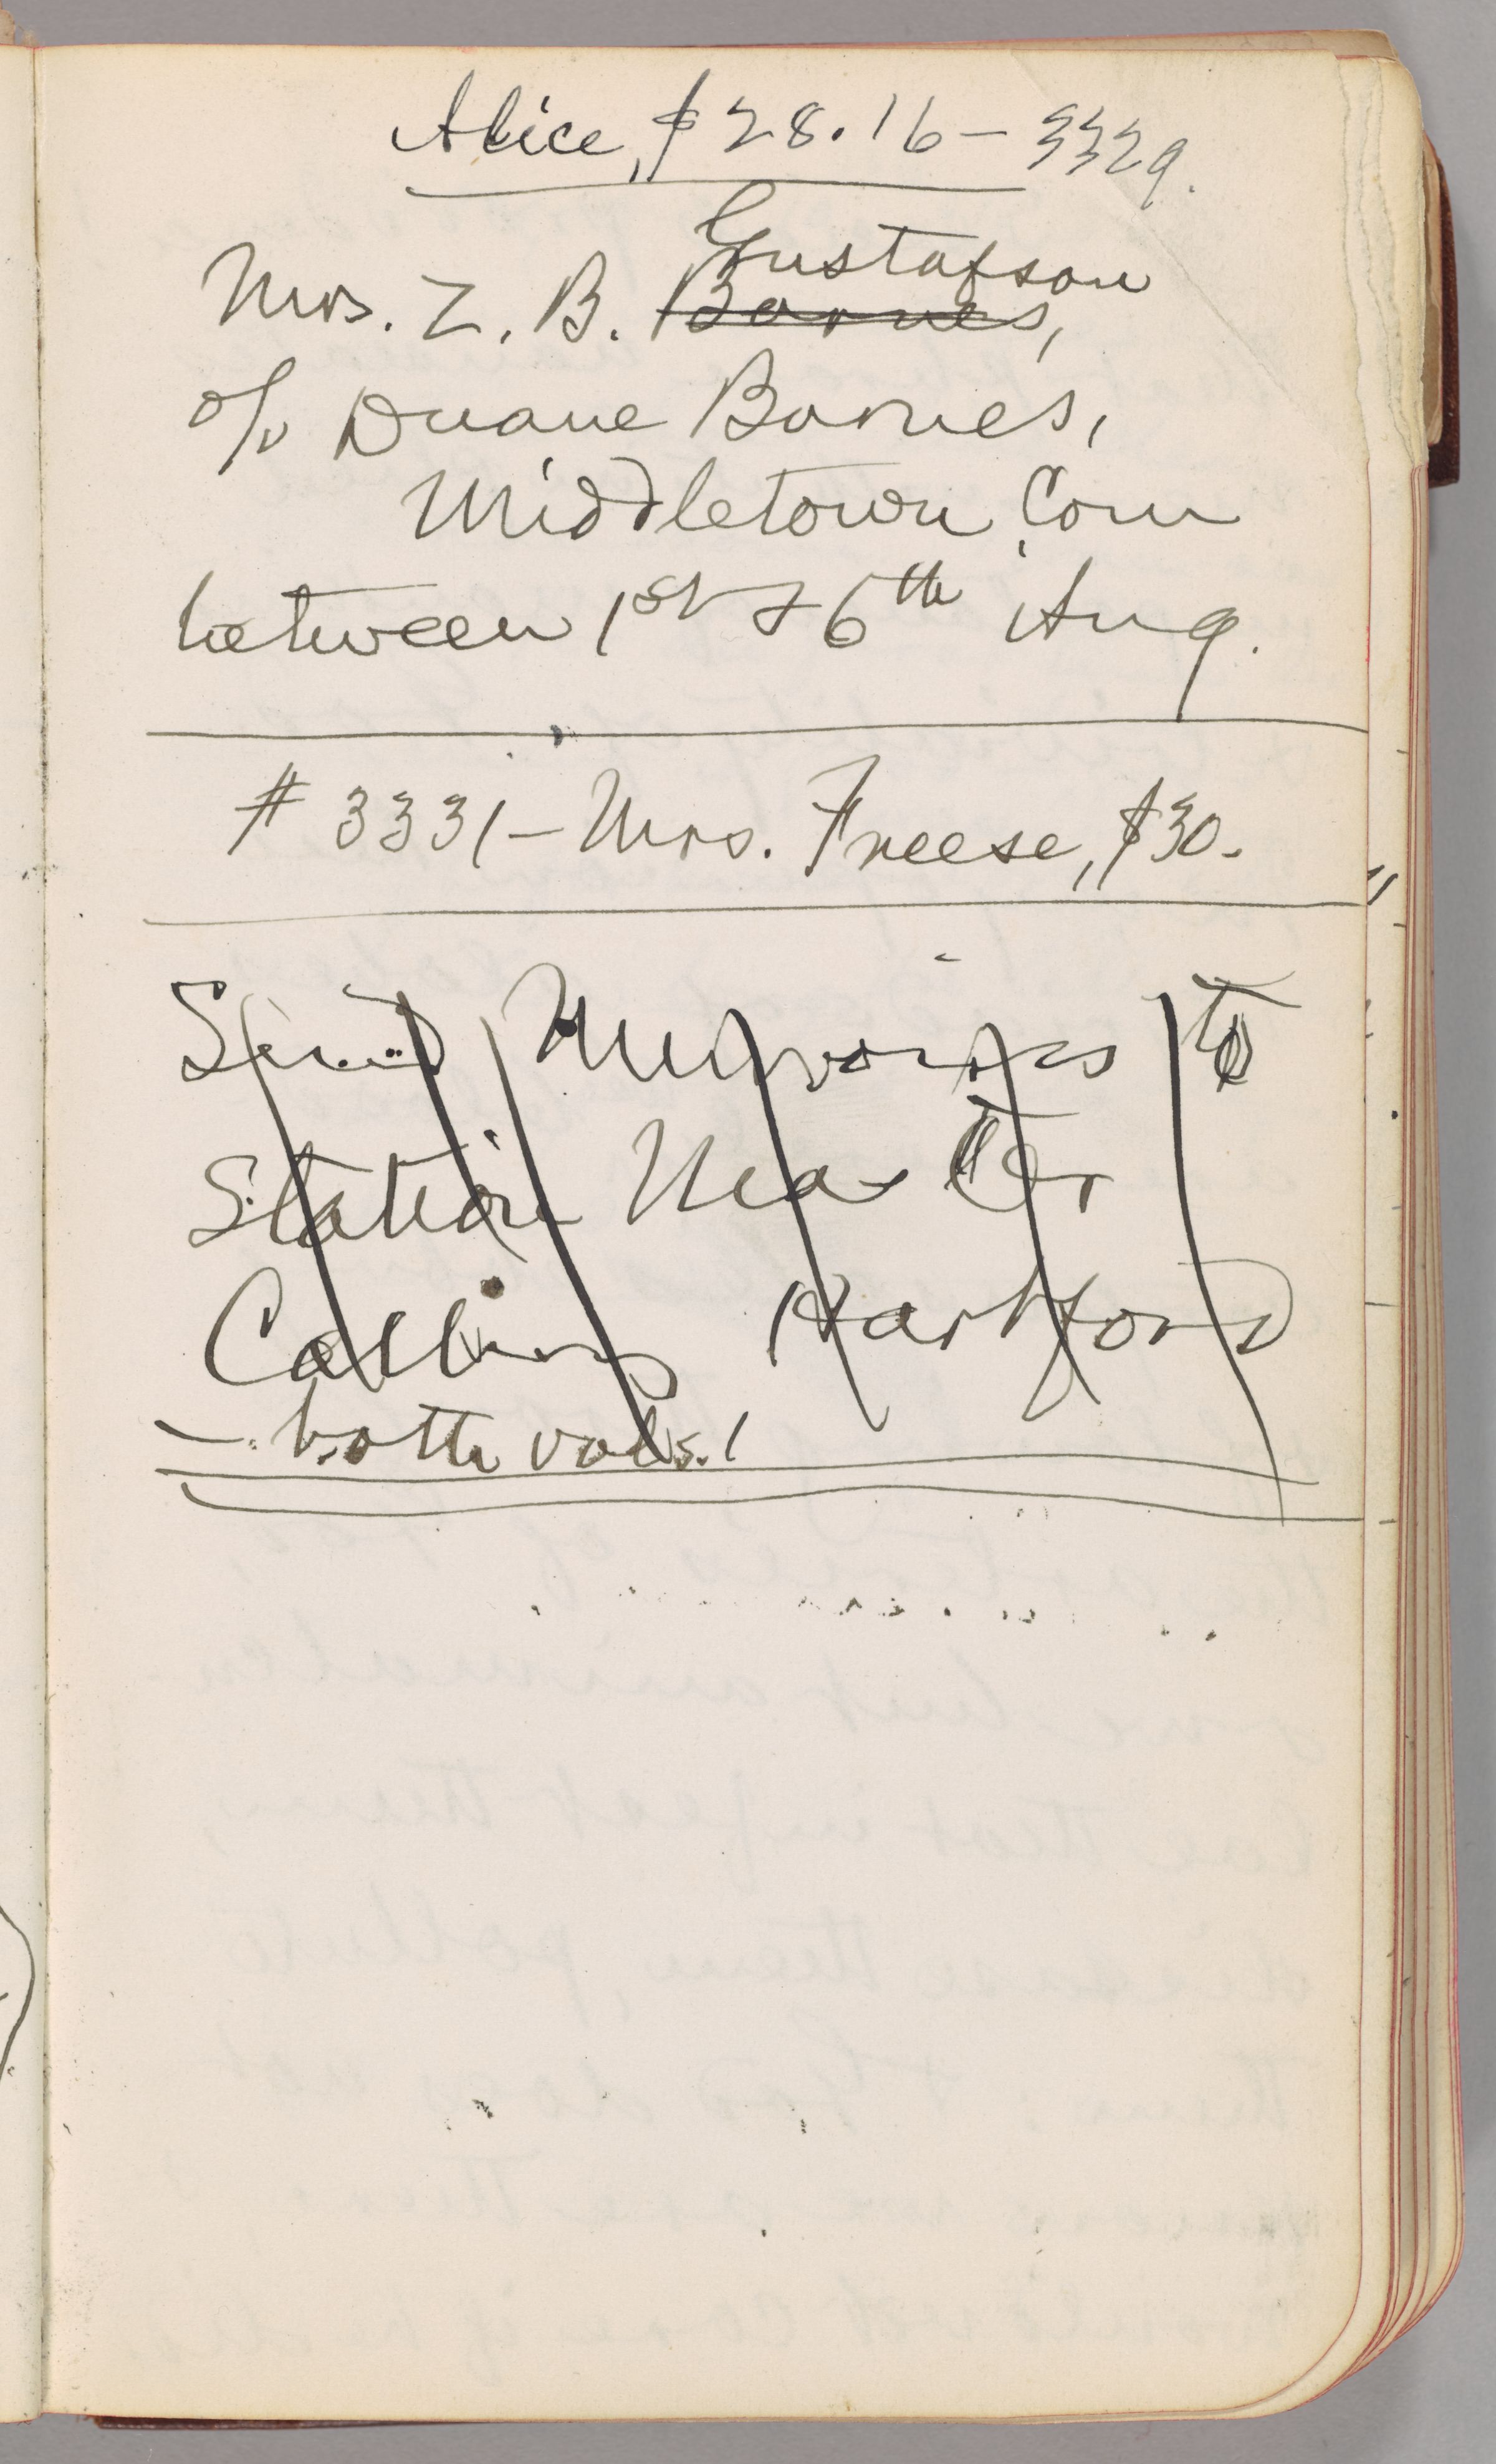 Alice, $28.16 – 3329.
Gustafson
Mrs. Z. B. Barnes,
c/o Duane Barnes,
Middletown, Conn
between 1st & 6th Aug.
# 3331 – Mrs. Freese, $30.
Send Memoirs to
Station Master
Collins Hartford
– both vols.